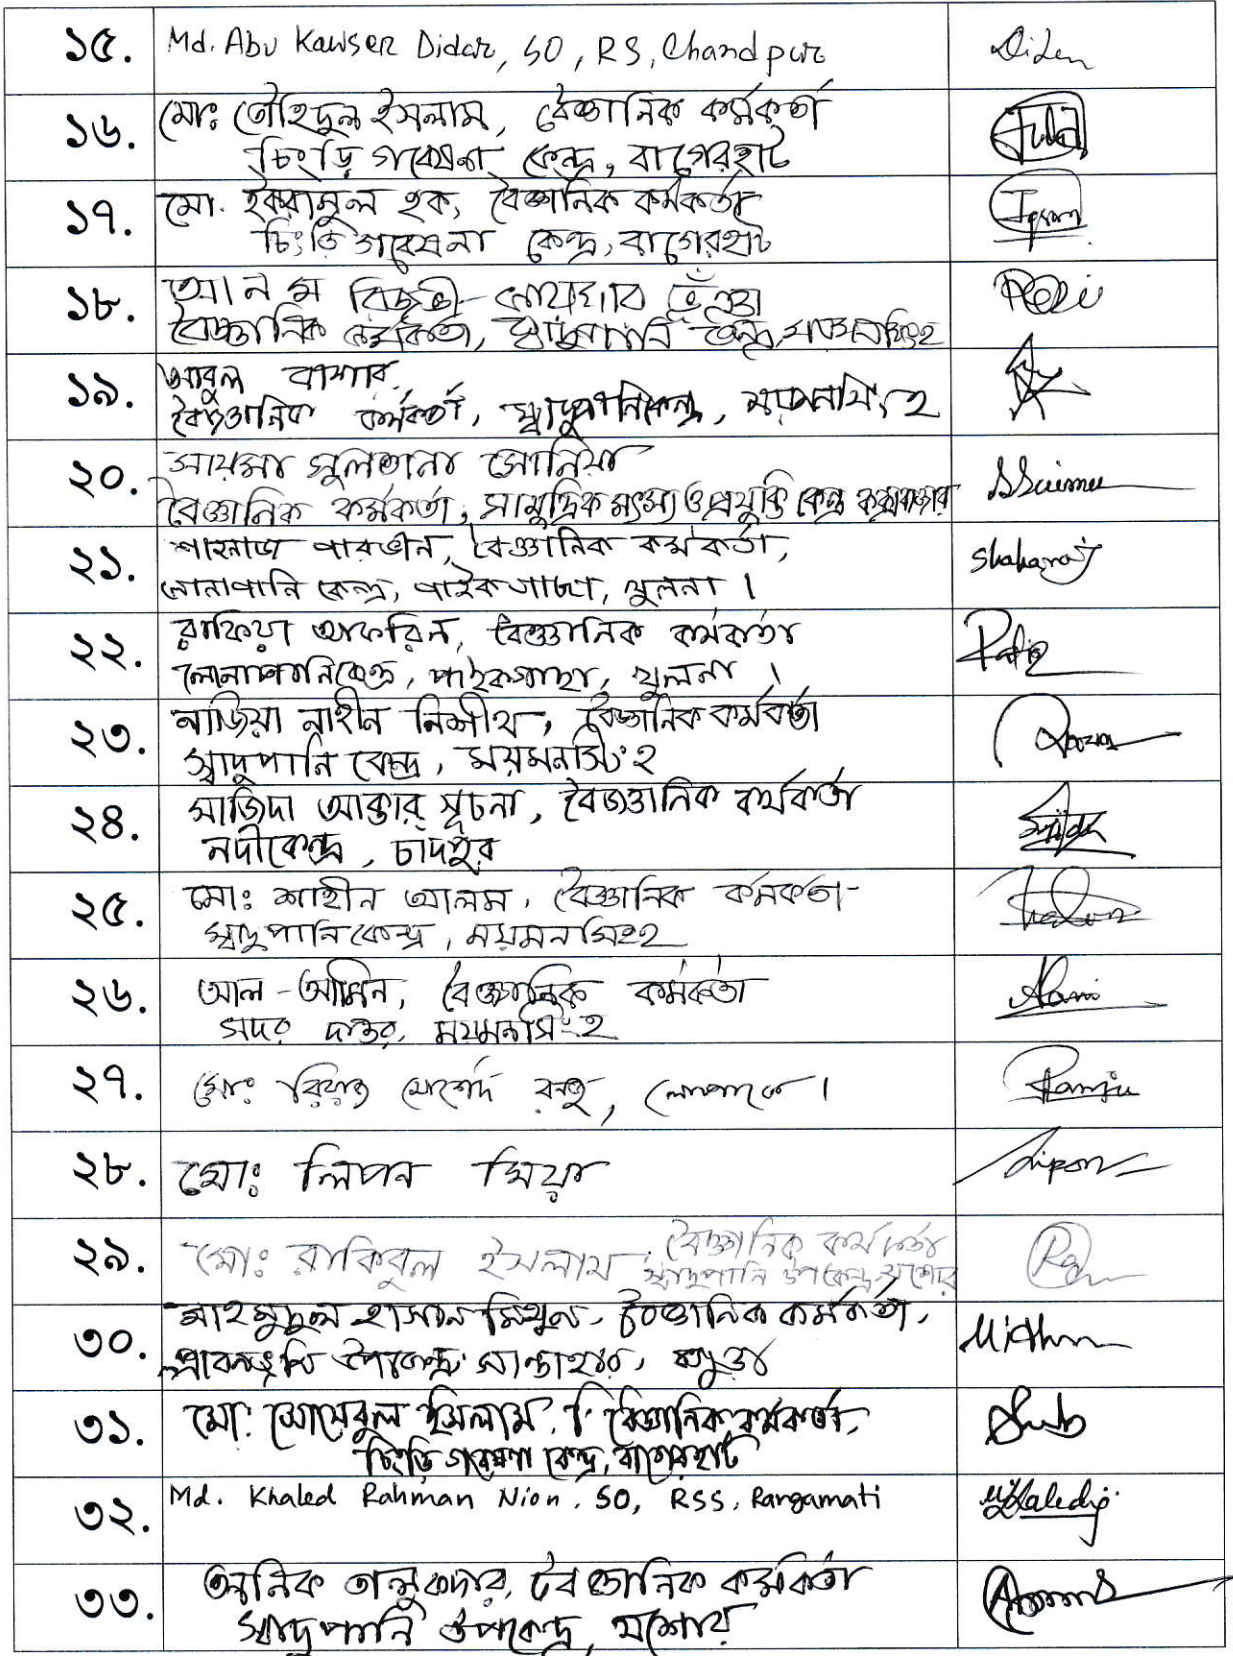 ১৫. Md. Abu Kawser Didar, SO, RS, Chandpur
১৬. মোঃ তৌহিদুল ইসলাম, বৈজ্ঞানিক কর্মকর্তা
চিংড়ি গবেষণা কেন্দ্র, বাগেরহাট
১৭. মো. ইকরামুল হক, বৈজ্ঞানিক কর্মকর্তা
চিংড়ি গবেষনা কেন্দ্র, বাগেরহাট
১৮. আ ন ম রিজভী ভূঁঞা
বৈজ্ঞানিক কর্মকর্তা, স্বাদুপানি কেন্দ্র, ময়মনসিংহ
১৯. আবুল বাশার,
বৈজ্ঞানিক কর্মকর্তা, স্বাদুপানিকেন্দ্র, ময়মনসিংহ
২০. সায়মা সুলতানা সোনিয়া SSaima
বৈজ্ঞানিক কর্মকর্তা, সামুদ্রিক মৎস্য ও প্রযুক্তি কেন্দ্র কক্সবাজার
২১. শাহনাজ পারভীন, বৈজ্ঞানিক কর্মকর্তা, Shahanaj
লোনাপানি কেন্দ্র, পাইকগাছা, খুলনা।
২২. রাফিয়া আফরিন, বৈজ্ঞানিক কর্মকর্তা
লোনাপানিকেন্দ্র, পাইকগাছা, খুলনা।
২৩. নাজিয়া নাহীন নিশীথ, বৈজ্ঞানিক কর্মকর্তা
স্বাদুপানি কেন্দ্র, ময়মনসিংহ
২৪. সাজিদা আক্তার সূচনা, বৈজ্ঞানিক কর্মকর্তা
নদীকেন্দ্র, চাদপুর
২৫. মোঃ শাহীন আলম, বৈজ্ঞানিক কর্মকর্তা
স্বাদুপানিকেন্দ্র, ময়মনসিংহ
২৬. আল-আমিন, বৈজ্ঞানিক কর্মকর্তা
সদর দপ্তর, ময়মনসিংহ
২৭. মোঃ রিয়াজ মোর্শেদ রনজু, Ranju
২৮. মোঃ লিপন মিয়া Lipon
২৯. মোঃ রাকিবুল ইসলাম, বৈজ্ঞানিক কর্মকর্তা
স্বাদুপানি উপকেন্দ্র, যশোর
৩০. মাহমুদুল হাসান মিথুন, বৈজ্ঞানিক কর্মকর্তা, Mithun
প্লাবনভূমি উপকেন্দ্র সান্তাহার, বগুড়া
৩১. মো: সোয়েবুল ইসলাম, বৈজ্ঞানিক কর্মকর্তা,
চিংড়ি গবেষণা কেন্দ্র, বাগেরহাট
৩২. Md. Khaled Rahman Nion, SO, RSS, Rangamati
৩৩. অনিক তালুকদার, বৈজ্ঞানিক কর্মকর্তা
স্বাদুপানি উপকেন্দ্র, যশোর